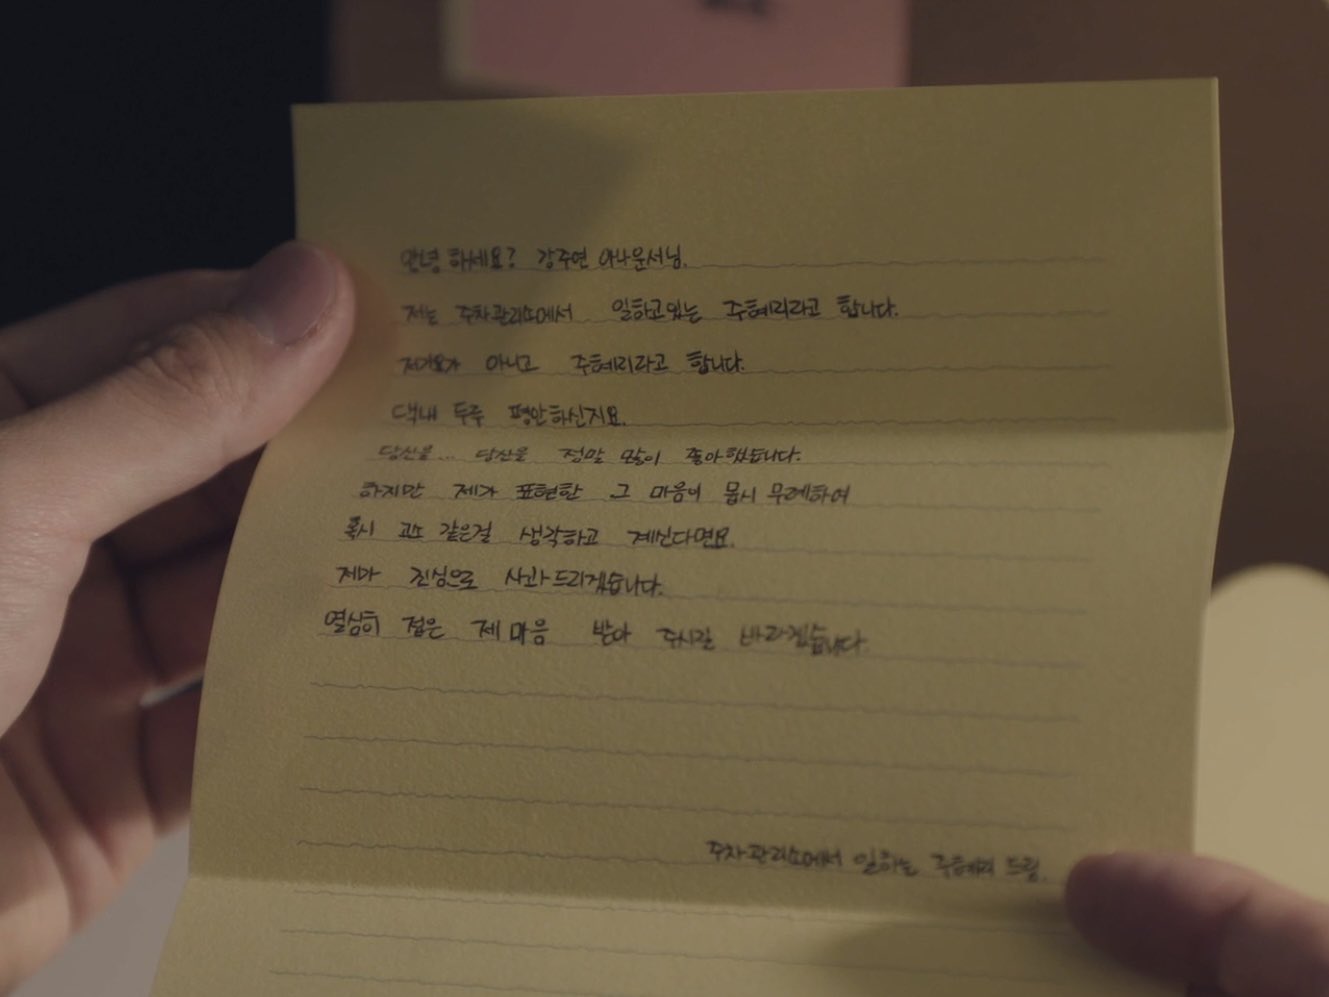 안녕하세요? 강주연 아나운서님.
저는 주차관리소에서 일하고있는 주혜리라고 합니다.
저기요가 아니고 주혜리라고 합니다.
댁내 두루 평안하신지요.
당신을... 당신을 정말 많이 좋아했습니다.
하지만 제가 표현한 그 마음이 몹시 무례하여
혹시 고소 같은걸 생각하고 계신다면요.
저가 진심으로 사과드리겠습니다.
열심히 접은 제 마음 받아 주시길 바라겠습니다.
주차관리소에서 일하는 주혜리 드림.